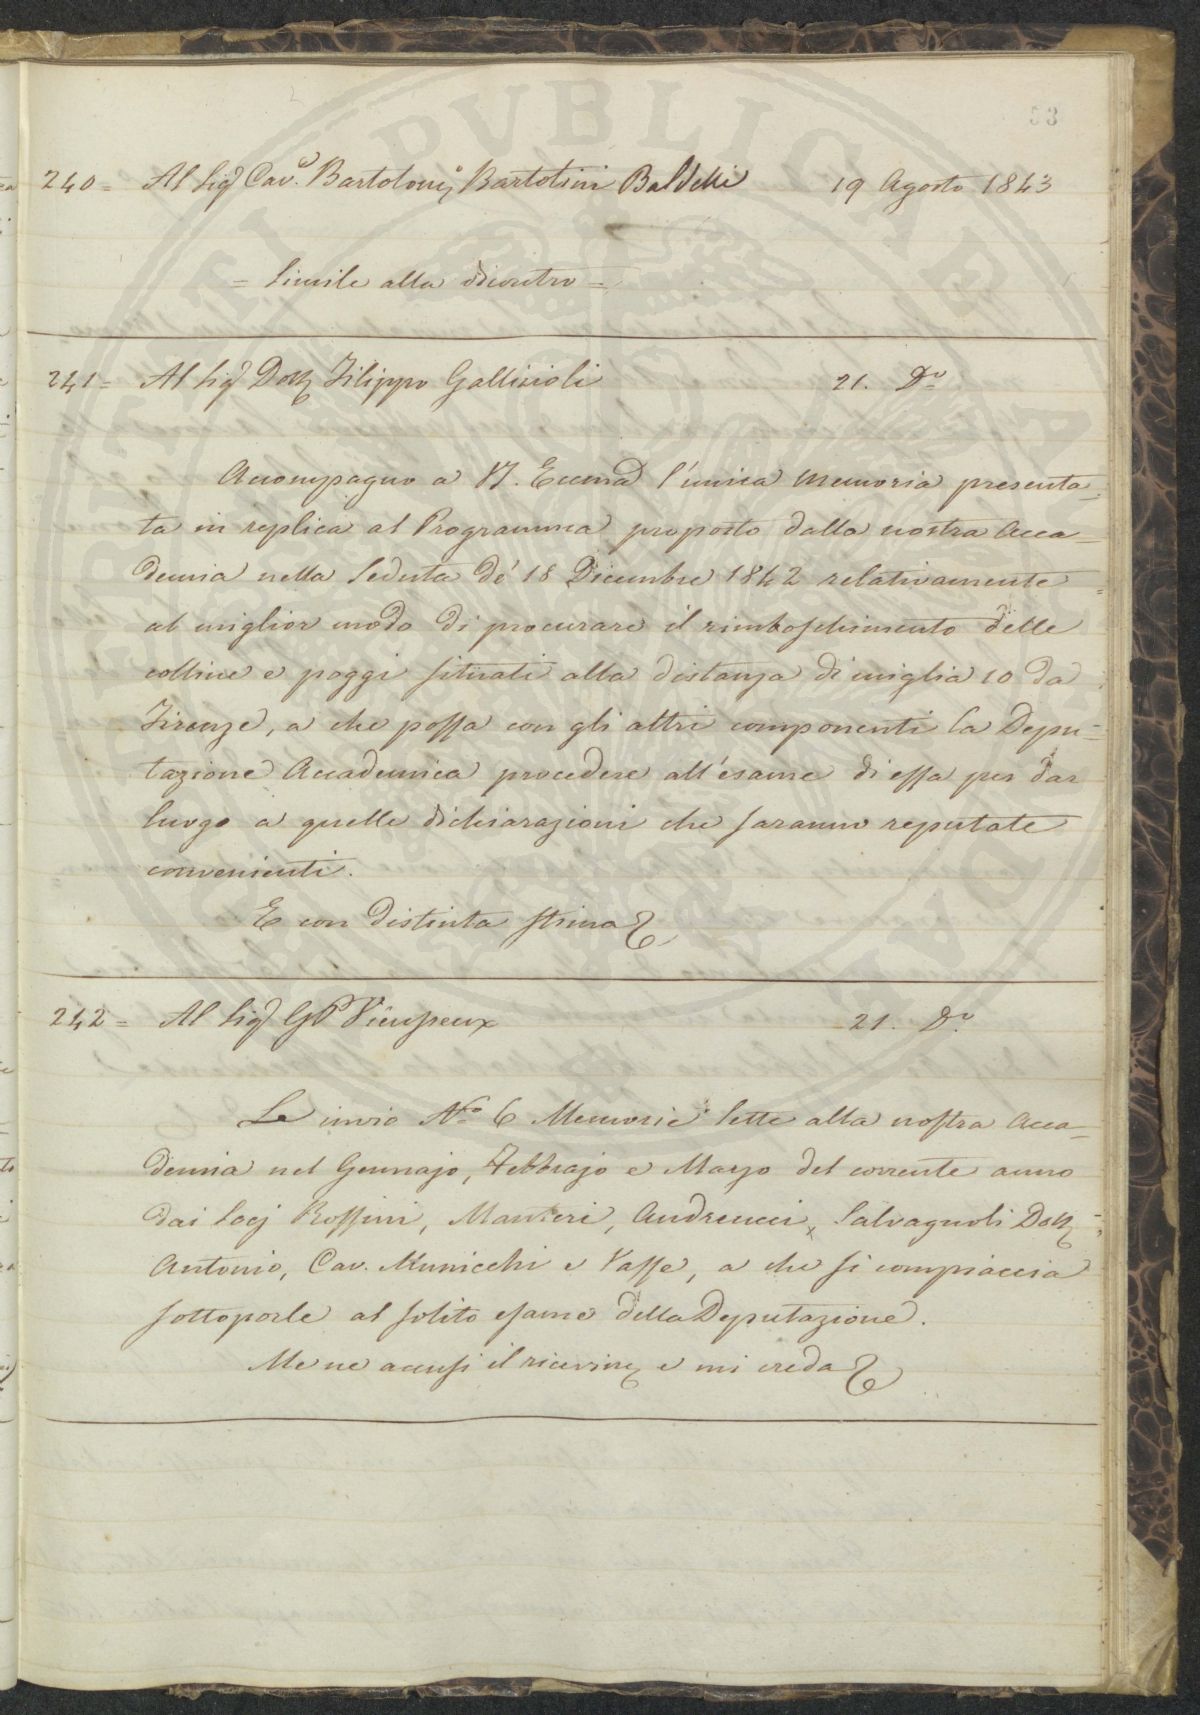 53
240= Al Sigr Cav.e Bartolomo Bartolini Baldelli 19 Agosto 1843
= Simile alla dicontro =
241= Al Sigr Dottr Filippo Gallizioli 21. Do
Accompagno a VS. Eccma l'unica Memoria presenta=
ta in replica al Programma proposto dalla nostra Acca=
demia nella Seduta de' 18 Dicembre 1842 relativamente
al miglior modo di procurare il rimboschimento delle
colline e poggi situati alla distanza di miglia 10 da
Firenze, a che possa con gli altri componenti la Depu=
tazione Accademica procedere all'esame di essa per dar
luogo a quelle dichiarazioni che saranno reputate
convenienti.
E con distinta stima
242= Al Sigr GP Vieusseux 21. Do.
Le invio No 6 Memorie lette alla nostra Acca=
demia nel Gennajo, Febbrajo e Marzo del corrente anno
dai Socj Rossini, Manteri, Andreucci, Salvagnoli Dottr
Antonio, Cav. Municchi e Taffe, a che si compiaccia
sottoporle al solito esame della Deputazione.
Me ne accusi il ricevere e mi creda
PVBLICAE